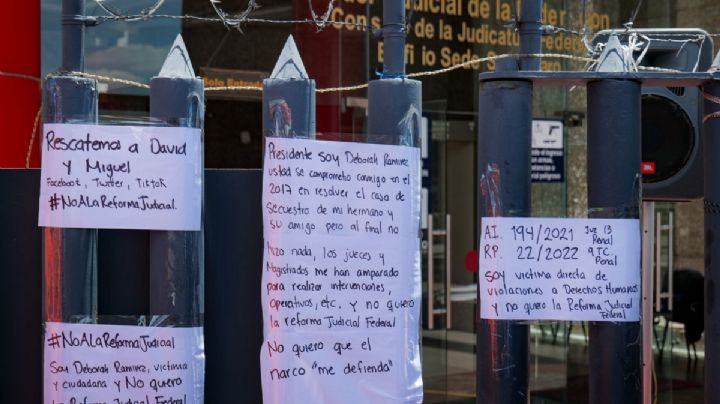 Judicial de la Federación
Consejo de la Judicatura Federal
Edificio Sede S
Solo Entrada
Rescatemos a David
y Miguel
Facebook, Twitter, TikTok
#NOALaReformaJudicial.
#NOALaReformaJudicial
Soy Deborah Ramírez, victima
y ciudadana y NO quiero
la Reforma Judicial
Presidente soy Deborah Ramírez,
usted se comprometio conmigo en el
2017 en resolver el caso de
secuestro de mi hermano y
su amigo pero al final no
hizo nada, los jueces y
Magistrados me han amparado
para realizar intervenciones,
operativos, etc. y no quiero
la reforma Judicial Federal
No quiero que el
narco "me defienda"
A.I. 194/2021 Juz 13 Penal
R.P. 22/2022 9 TC. Penal
Soy victima directa de
violaciones a Derechos Humanos
y no quiero la Reforma Judicial
Federal
JBL